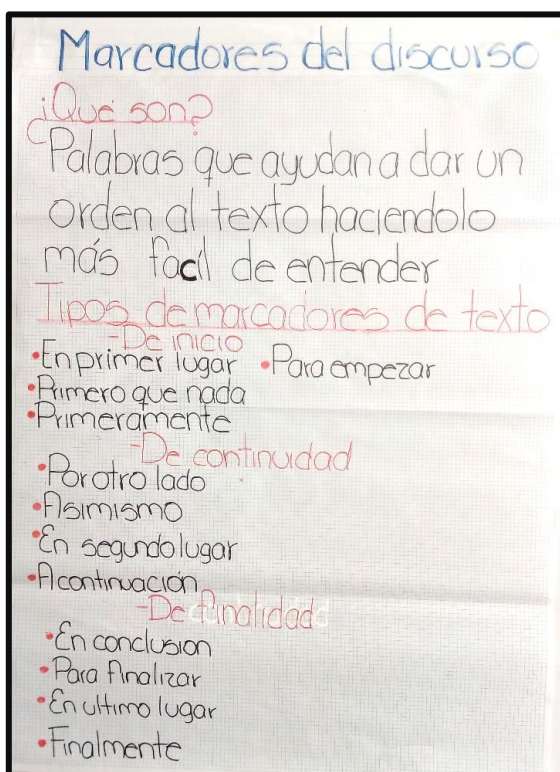 Marcadores del discurso
¿Qué son?
Palabras que ayudan a dar un
orden al texto haciendolo
más facil de entender
Tipos de marcadores de texto
-De inicio
•En primer lugar •Para empezar
•Primero que nada
•Primeramente
-De continuidad
•Por otro lado
•Asimismo
•En segundo lugar
•A continuación
-De finalidad
•En conclusion
•Para finalizar
•En ultimo lugar
•Finalmente